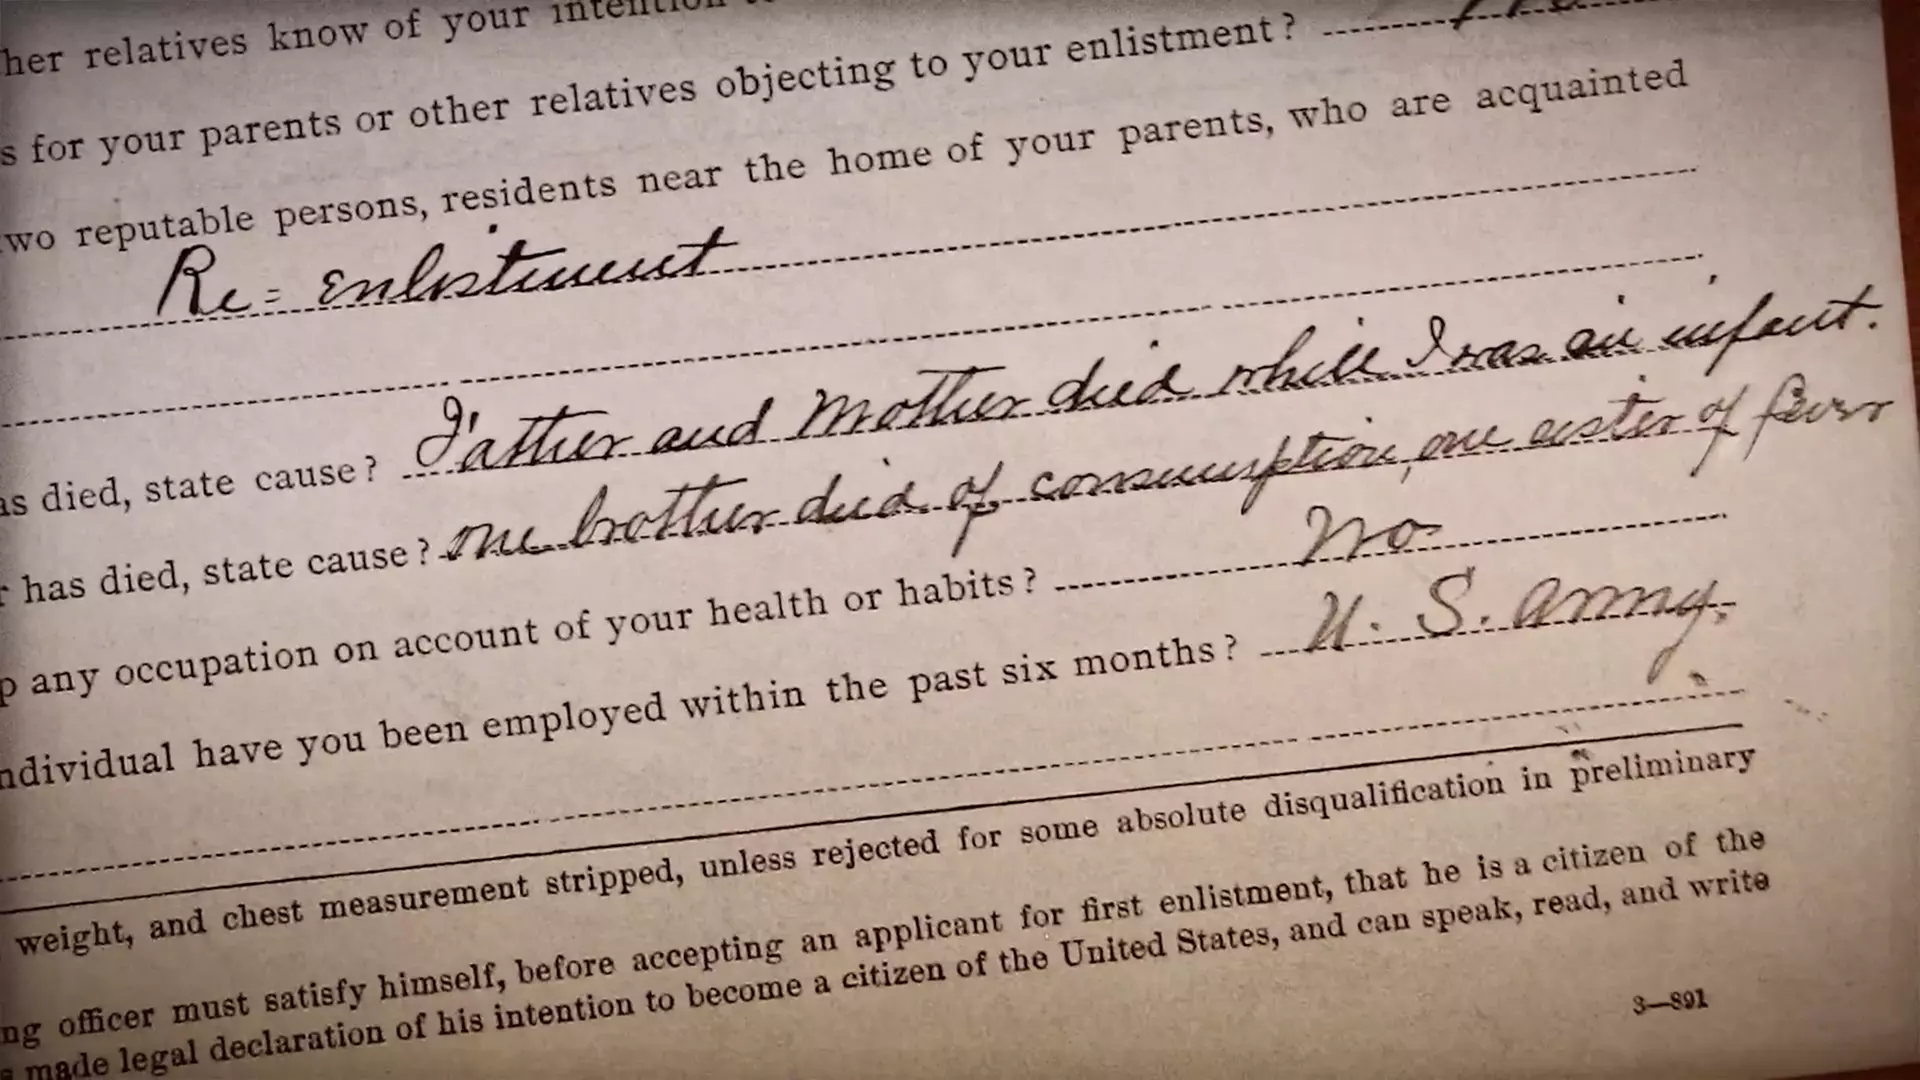 her relatives know of your intention
s for your parents or other relatives objecting to your enlistment?
wo reputable persons, residents near the home of your parents, who are acquainted
Re=enlistment
as died, state cause? Father and Mother died while I was an infant.
r has died, state cause? One brother died of consumption, one sister of fever
p any occupation on account of your health or habits? No
ndividual have you been employed within the past six months? U. S. Army.
weight, and chest measurement stripped, unless rejected for some absolute disqualification in preliminary
ng officer must satisfy himself, before accepting an applicant for first enlistment, that he is a citizen of the
made legal declaration of his intention to become a citizen of the United States, and can speak, read, and write
3—891